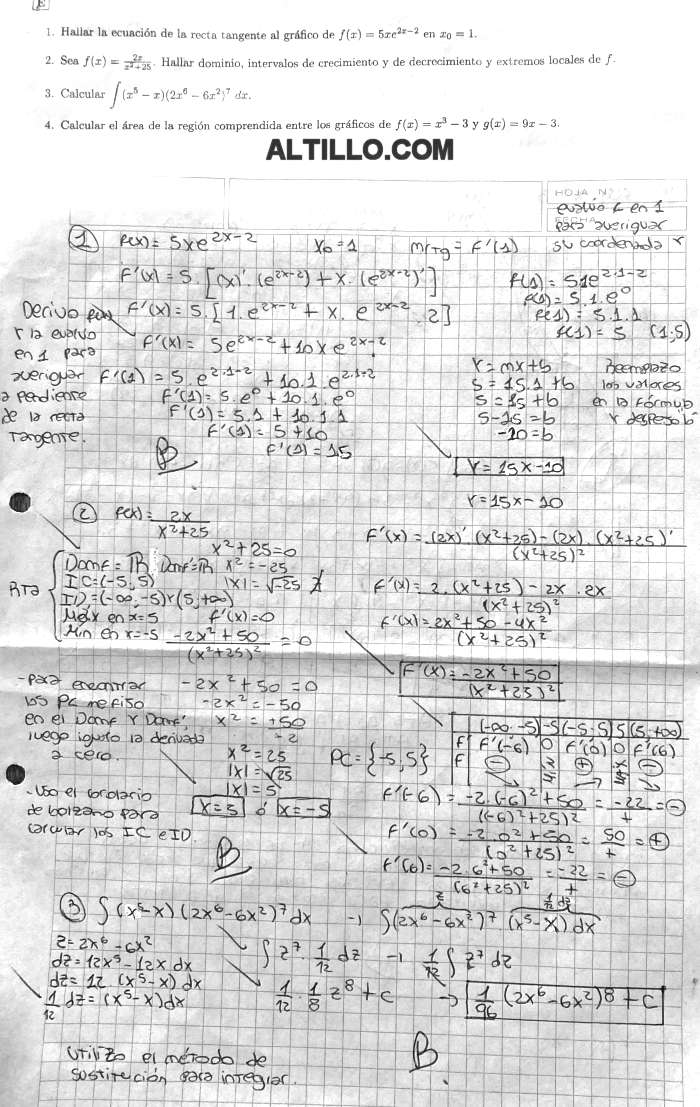 E
1. Hallar la ecuación de la recta tangente al gráfico de f(x) = 5xe^{2x−2} en x₀ = 1.
2. Sea f(x) = 2x/(x²+25). Hallar dominio, intervalos de crecimiento y de decrecimiento y extremos locales de f.
3. Calcular ∫(x⁵ − x)(2x⁶ − 6x²)⁷ dx.
4. Calcular el área de la región comprendida entre los gráficos de f(x) = x³ − 3 y g(x) = 9x − 3.
ALTILLO.COM
HOJA Nº
evaluo f en 1
para averiguar
su coordenada Y
① f(x) = 5xe^{2x−2} x₀ = 1 m_{rTg} = f'(1)
f'(x) = 5.[(x)'.(e^{2x−2}) + x.(e^{2x−2})']
f(1) = 5.1e^{2.1−2}
f(1) = 5.1.e⁰
f(1) = 5.1.1
f(1) = 5 (1;5)
Derivo
Y la evaluo
en 1 para
averiguar
la pendiente
de la recta
Tangente.
f'(x) = 5.[1.e^{2x−2} + x.e^{2x−2}.2]
f'(x) = 5e^{2x−2} + 10xe^{2x−2}
f'(1) = 5.e^{2.1−2} + 10.1.e^{2.1−2}
f'(1) = 5.e⁰ + 10.1.e⁰
f'(1) = 5.1 + 10.1.1
f'(1) = 5 + 10
f'(1) = 15
B
Y = mx+b
5 = 15.1 + b
5 = 15 + b
5−15 = b
−10 = b
Reemplazo
los valores
en la fórmula
Y despejo b
Y = 15x−10
Y = 15x−10
② f(x) = 2x/(x²+25)
x²+25=0
x² = −25
|x| = √−25 ∄
RTA
Domf = ℝ Domf' = ℝ
IC = (−5; 5)
ID = (−∞, −5) Y (5; +∞)
Máx en x=5
Min en x=−5
f'(x) = 0
(−2x² + 50)/(x²+25)² = 0
f'(x) = ((2x)'.(x²+25) − (2x).(x²+25)')/(x²+25)²
f'(x) = (2.(x²+25) − 2x.2x)/(x²+25)²
f'(x) = (2x²+50 − 4x²)/(x²+25)²
f'(x) = (−2x²+50)/(x²+25)²
-Para encontrar
los PC me fijo
en el Domf Y Domf',
luego igualo la derivada
a cero.
−2x² + 50 = 0
−2x² = −50
x² = −50/−2
x² = 25
|x| = √25
|x| = 5
x = 5 ó x = −5
PC = {−5; 5}
(−∞ −5) −5 (−5; 5) 5 (5, +∞)
f' f'(−6) 0 f'(0) 0 f'(6)
f − Min + Máx −
-Uso el corolario
de bolzano para
calcular los IC e ID.
B
f'(−6) = (−2.(−6)² + 50)/((−6)²+25)² = −22/+ = −
f'(0) = (−2.0² + 50)/(0²+25)² = 50/+ = +
f'(6) = (−2.6²+50)/(6²+25)² = −22/+ = −
③ ∫(x⁵−x)(2x⁶−6x²)⁷dx → ∫(2x⁶−6x²)⁷ (x⁵−x)dx
z 1/12 dz
z = 2x⁶−6x²
dz = 12x⁵−12x dx
dz = 12.(x⁵−x)dx
1/12 dz = (x⁵−x)dx
∫z⁷.1/12 dz → 1/12 ∫z⁷ dz
1/12 . 1/8 z⁸ + c → 1/96 (2x⁶−6x²)⁸ + c
Utilizo el método de
sustitución para integrar.
B